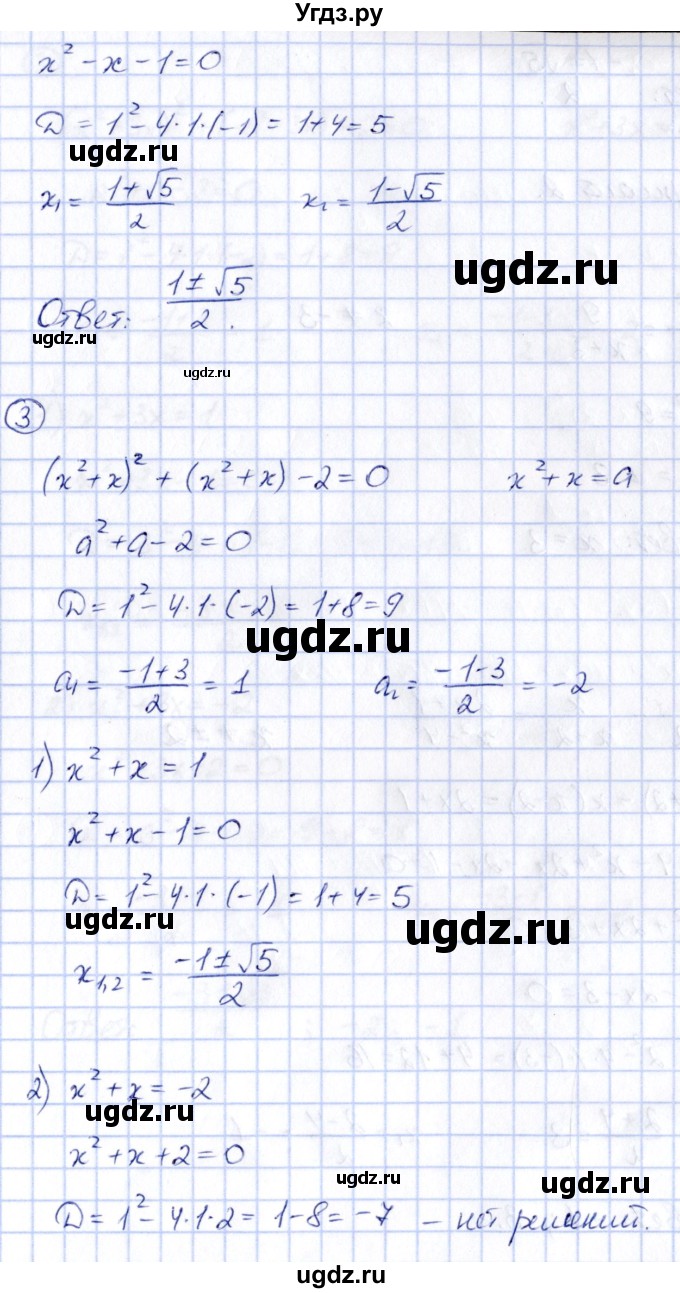 Угдз.ру
x² - x - 1 = 0
D = 1² - 4·1·(-1) = 1 + 4 = 5
ugdz.ru
x₁ = (1 + √5)/2    x₂ = (1 - √5)/2
ugdz.ru
Ответ: (1 ± √5)/2.
ugdz.ru
ugdz.ru
③
(x² + x)² + (x² + x) - 2 = 0    x² + x = a
a² + a - 2 = 0
D = 1² - 4·1·(-2) = 1 + 8 = 9
ugdz.ru
a₁ = (-1 + 3)/2 = 1    a₂ = (-1 - 3)/2 = -2
1) x² + x = 1
x² + x - 1 = 0
D = 1² - 4·1·(-1) = 1 + 4 = 5
ugdz.ru
x₁,₂ = (-1 ± √5)/2
2) x² + x = -2
ugdz.ru
x² + x + 2 = 0
ugdz.ru
ugdz.ru
D = 1² - 4·1·2 = 1 - 8 = -7 – нет решений.
ugdz.ru